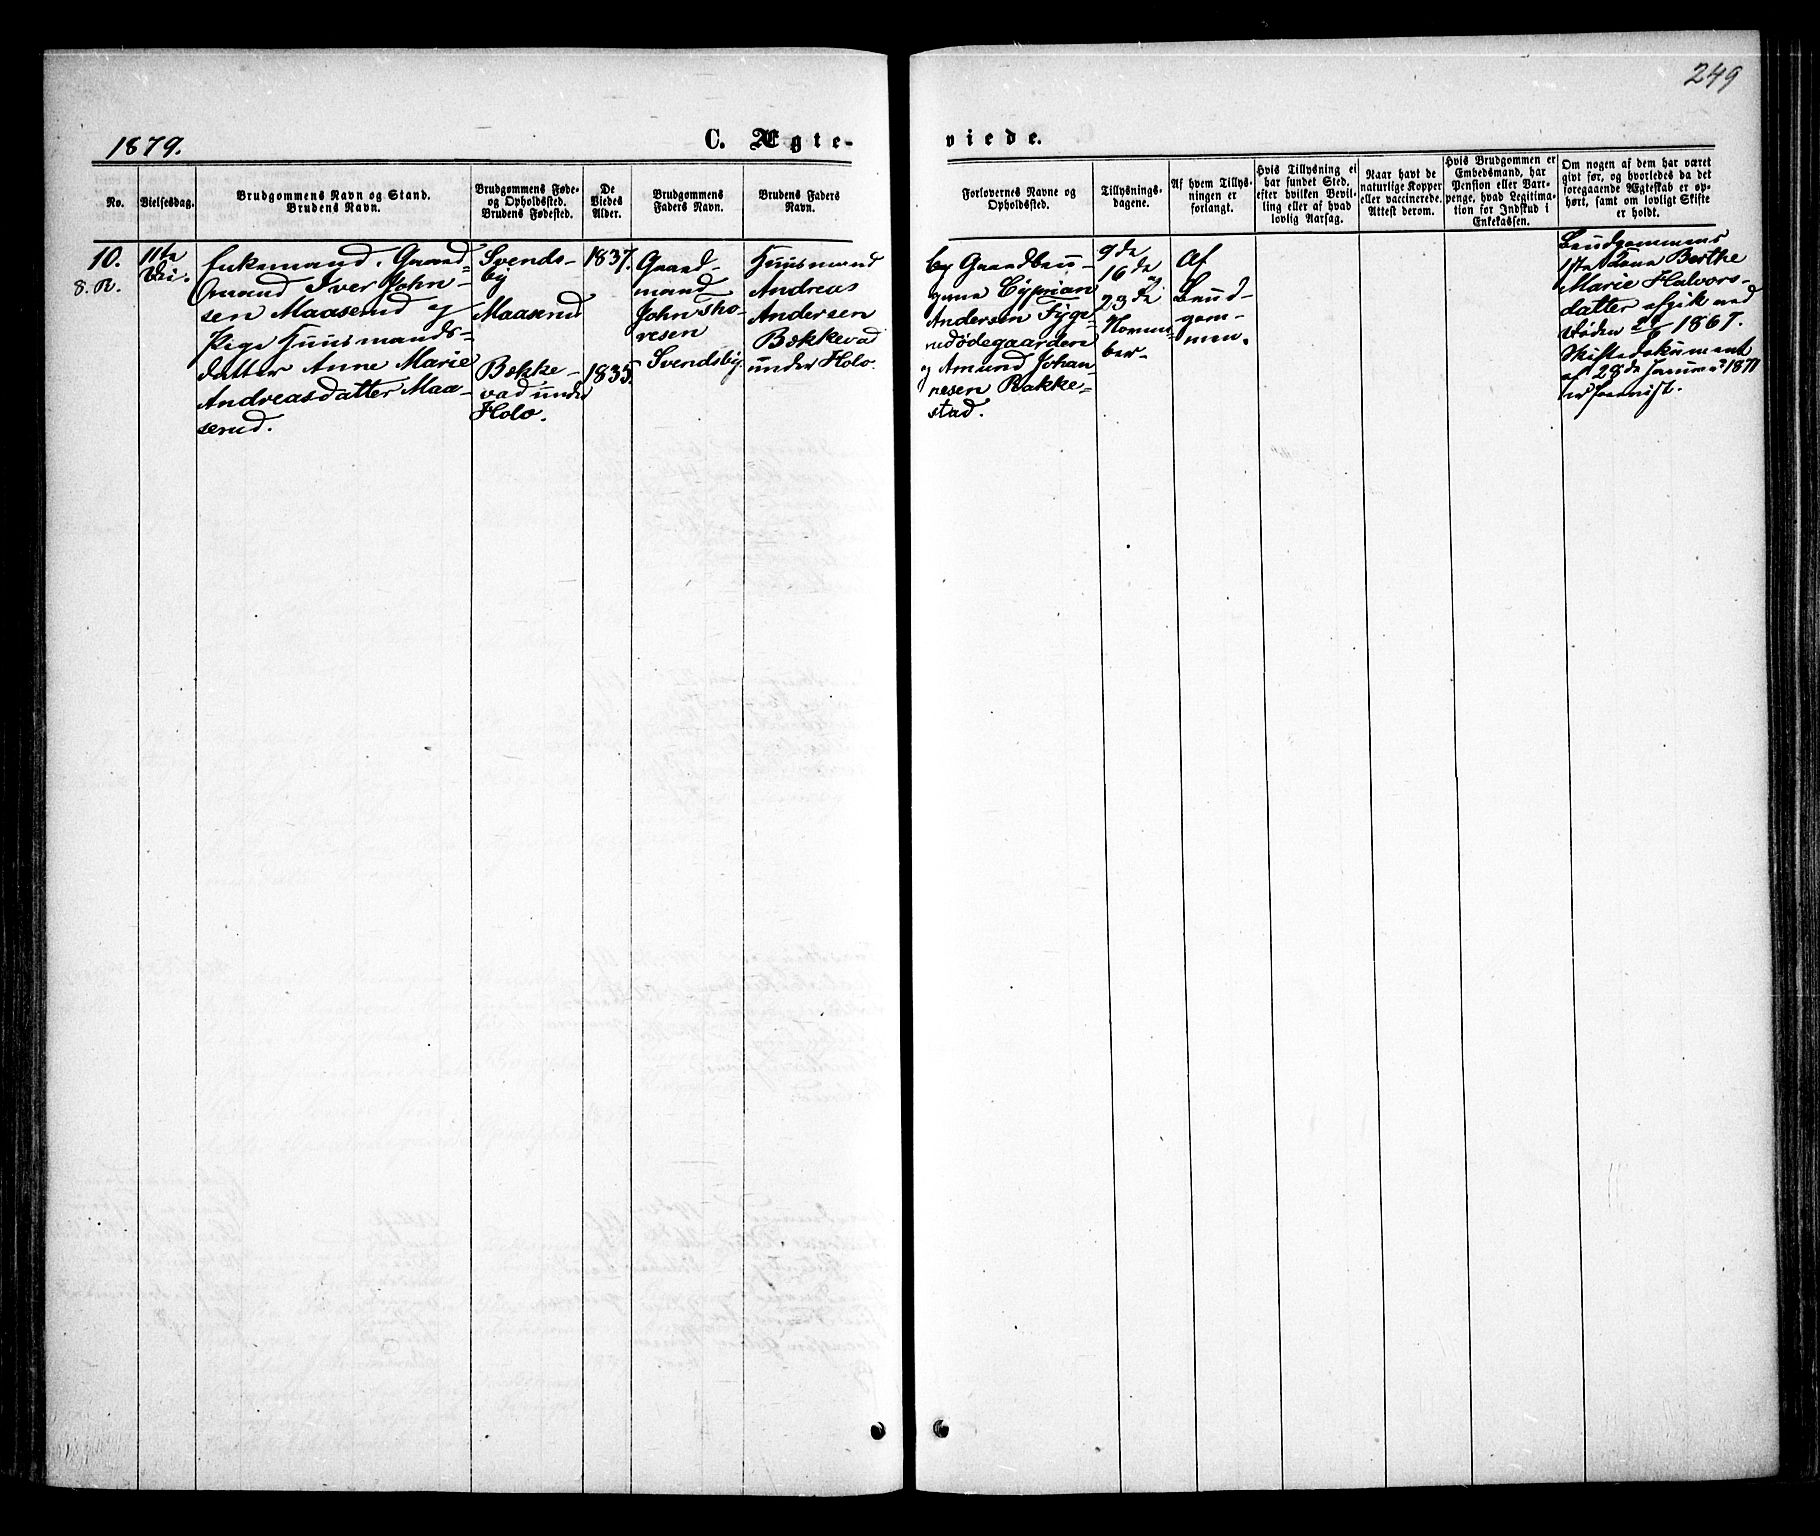 249
1879. C. Ægte- viede.
No.
Vielsesdag.
Brudgommens Navn og Stand.
Brudens Navn.
Brudgommens Føde-
og Opholdssted.
Brudens Fødested.
De
Viedes
Alder.
Brudgommens
Faders Navn.
Brudens Faders
Navn.
Forlovernes Navne og
Opholdssted.
Tillysnings-
dagene.
Af hvem Tillys-
ningen er
forlangt.
Hvis Tillysning ei
har fundet Sted,
efter hvilken Bevil-
ling eller af hvad
lovlig Aarsag.
Naar havt de
naturlige Kopper
eller vaccinerede.
Attest derom.
Hvis Brudgommen er
Embedsmand, har
Pension eller Vart-
penge, hvad Legitima-
tion for Indskud i
Enkekassen.
Om nogen af dem har været
givt før, og hvorledes da det
foregaaende Ægteskab er op-
hørt, samt om lovligt Skifte
er holdt.
10.
8. N.
11te
Enkemand, Gaard-
mand Iver John-
sen Maaserud og
Pige Huusmands-
datter Anne Marie
Andreasdatter Maa-
serud.
Svends-
by
Maaserud
Bække-
vad under
Holo.
1837.
1835.
Gaard-
mand
John Tho-
resen
Svendsby.
Huusmand
Andreas
Andersen
Bækkevad
under Holo.
by Gaardbru-
gerne Cyprian
Andersen Tyge-
rudødegaarden
og Amund Johan-
nesen Rakke-
stad.
9de
16de og
23de
Novem-
ber.
Af
Brud-
gom-
men.
Brudgommens
1ste Kone Berthe
Marie Halvors-
datter afgik ved
Døden 1867.
Skiftedokument
af 28de Januar 1871
er forevist.